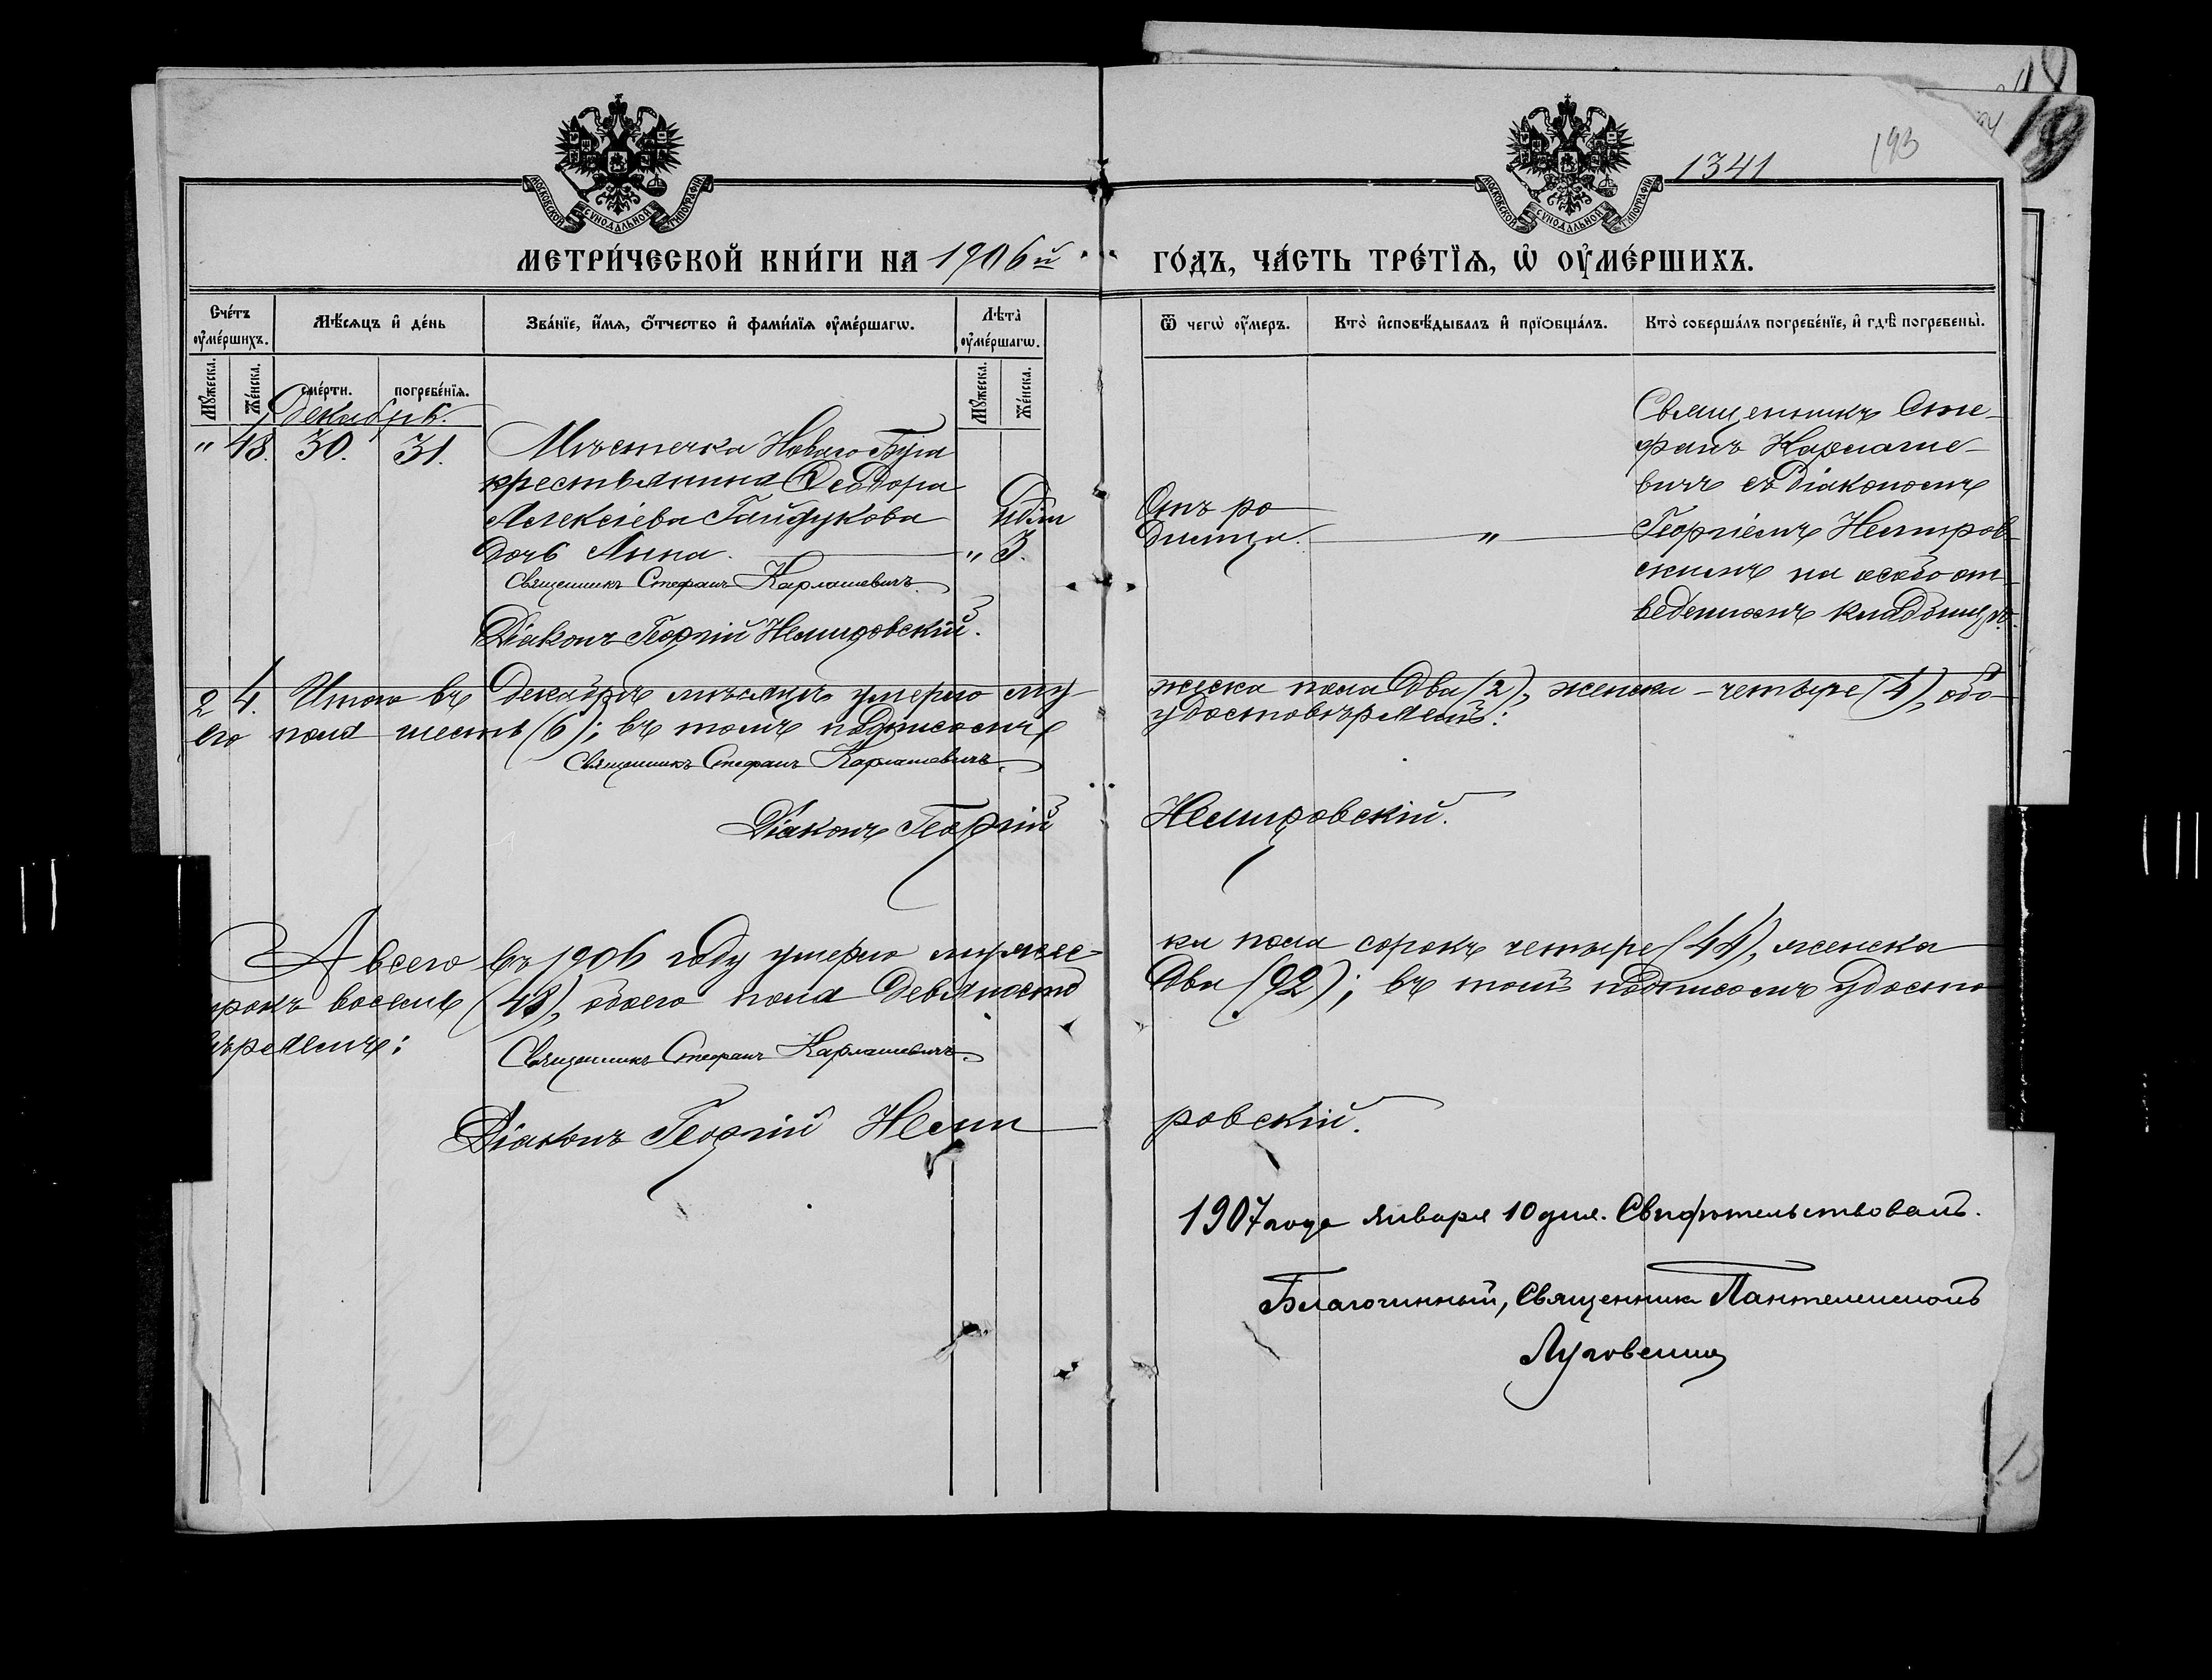 1341
193
19
МОСКОВСКОЙ СѴНОДАЛЬНОЙ ТИПОГРАФІИ
МОСКОВСКОЙ СѴНОДАЛЬНОЙ ТИПОГРАФІИ
МЕТРИ́ЧЕСКОЙ КНИ́ГИ НА 1906й ГО́ДЪ, ЧА́СТЬ ТРЕ́ТЇѦ, Ѡ҆ ОУ҆МЕ́РШИХЪ.
Сче́тъ оу҆ме́ршихъ.
Мѣ́сѧцъ и҆ де́нь
Зва́нїе, и҆́мѧ, ѻ҆́тчество и҆ фами́лїѧ оу҆ме́ршагѡ.
Лѣта̀ оу҆ме́ршагѡ.
Ѿ чегѡ̀ оу҆́меръ.
Кто̀ и҆сповѣ́дывалъ и҆ прїѻбща́лъ.
Кто̀ соверша́лъ погребе́нїе, и҆ гдѣ̀ погребены̀.
Мꙋ́жеска.
Же́нска.
сме́рти.
погребе́нїѧ.
Мꙋ́жеска.
Же́нска.
Декабрь.
" 48. 30. 31.
Мѣстечка Новаго Буга
крестьянина Ѳеодора
Алексіева Гайдукова
дочь Анна. " 3.
Священникъ Стефанъ Карлашевичъ.
Діаконъ Георгій Немировскій.
Отъ ро
димца. "
Священникъ Сте-
фанъ Карлаше-
вичъ съ діакономъ
Георгіемъ Немиров-
скимъ на особо от-
веденномъ кладбищѣ.
2 4. Итого въ Декабрѣ мѣсяцѣ умерло му жеска пола два (2), женска - четыре (4), обо-
его пола шесть (6); въ томъ подписомъ удостовѣряемъ:
Священникъ Стефанъ Карлашевичъ.
Діаконъ Георгій Немировскій.
А всего въ 1906 году умерло мужес- ка пола сорокъ четыре (44), женска
орокъ восемь (48), обоего пола девяносто два (92); въ томъ подписомъ удосто
вѣряемъ:
Священникъ Стефанъ Карлашевичъ.
Діаконъ Георгій Неми ровскій.
1907 года января 10 дня. Свидѣтельствовалъ.
Благочинный, Священникъ Пантелеимонъ